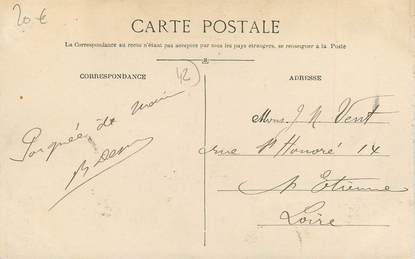 20€
CARTE POSTALE
La Correspondance au recto n'étant pas acceptée par tous les pays étrangers, se renseigner à la Poste
CORRESPONDANCE
42
ADRESSE
Mons. J N Vent
rue St Honoré 14
St Etienne
Loire